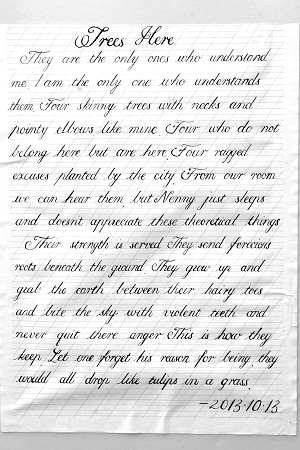 Trees Here
They are the only ones who understand
me. I am the only one who understands
them. Four skinny trees with necks and
pointy elbows like mine. Four who do not
belong here but are here. Four ragged
excuses planted by the city. From our room
we can hear them, but Nenny just sleeps
and doesn't appreciate these theoretical things
Their strength is served They send ferocious
roots beneath the ground They grow up and
grab the earth between their hairy toes
and bite the sky with violent teeth and
never quit there anger This is how they
keep. Let one forget his reason for being, they
would all drop like tulips in a grass.
-2013.10.13